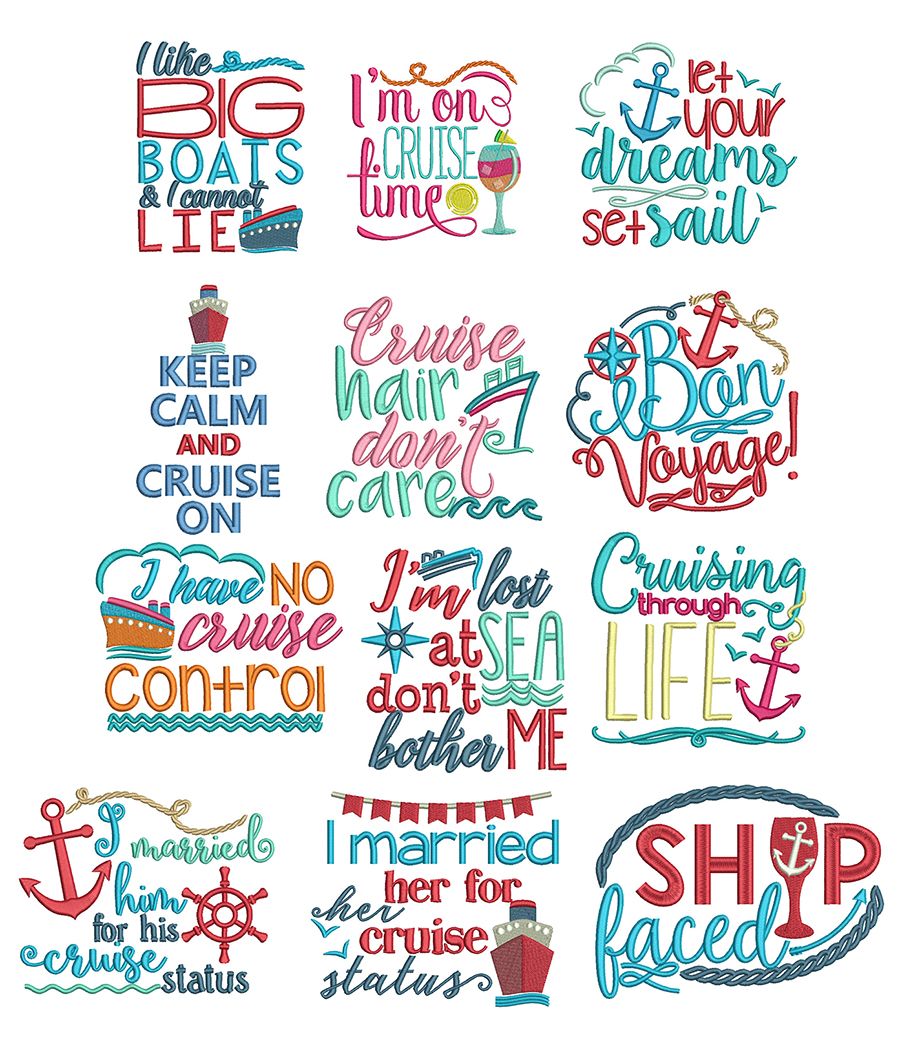 I like
BIG
BOATS
& I cannot
LIE
I'm on
CRUISE
time
let
your
dreams
set sail
KEEP
CALM
AND
CRUISE
ON
Cruise
hair
don't
care
Bon
Voyage!
I have NO
cruise
control
I'm lost
at SEA
don't
bother ME
Cruising
through
LIFE
I married
him
for his
cruise
status
I married
her for
her
cruise
status
SHIP
faced